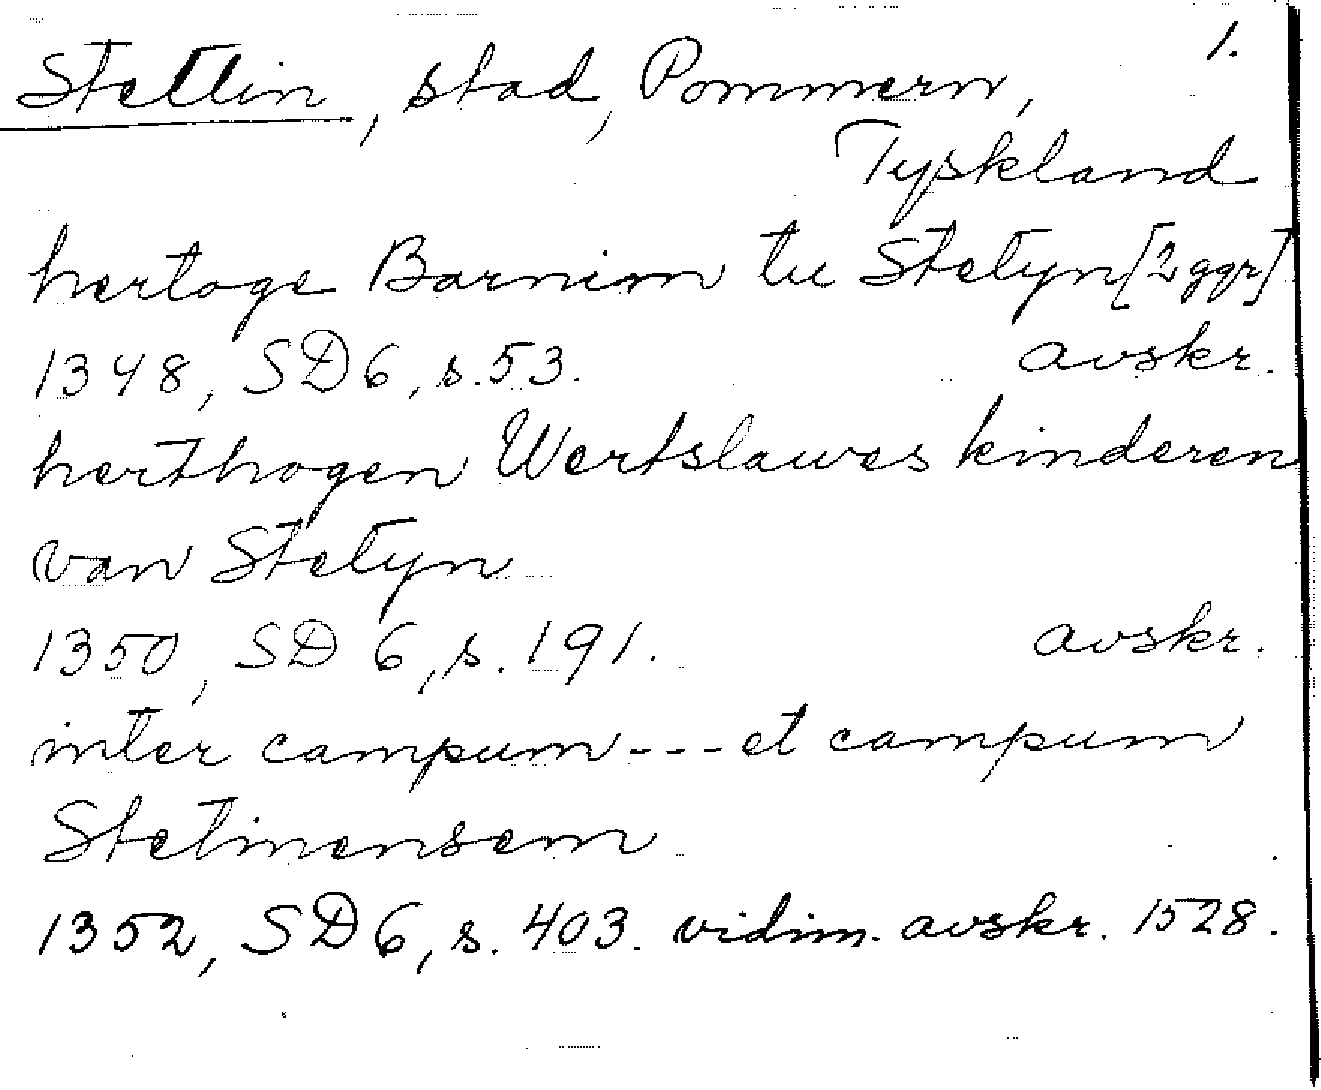 1.
Stettin, stad, Pommern,
Tyskland
hertoge Barnim tu Stetyn [2 ggr]
1348, SD 6, s. 53. avskr.
herthogen Wertslawes kinderen
van Stetyn
1350, SD 6, s. 191. avskr.
inter campum --- et campum
Stetinensem
1352, SD 6, s. 403. vidim. avskr. 1528.